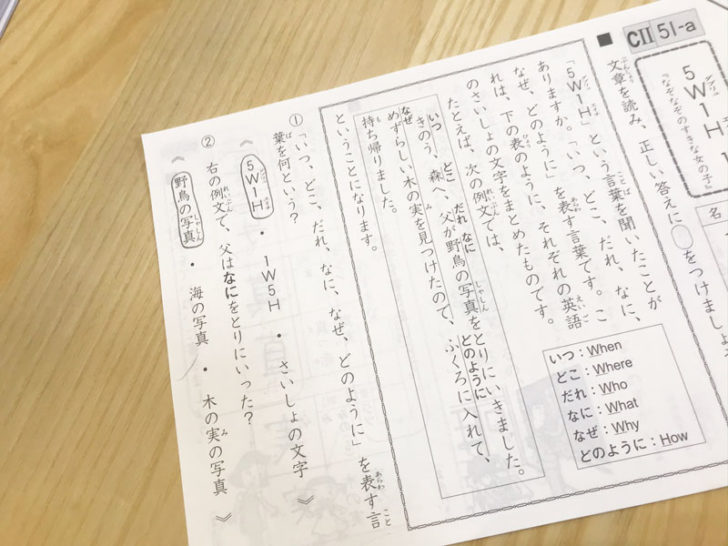 CII 51-a
5W1H
『なぞなぞのすきな女の子』
名
■文章を読み、正しい答えに○をつけましょ
「5W1H」という言葉を聞いたことが
ありますか。「いつ、どこ、だれ、なに、
なぜ、どのように」を表す言葉です。こ
れは、下の表のように、それぞれの英語
のさいしょの文字をまとめたものです。
たとえば、次の例文では、
いつ どこ だれ なに
きのう、森へ、父が野鳥の写真をとりにいきました。
なぜ どのように
めずらしい木の実を見つけたので、ふくろに入れて、
持ち帰りました。
ということになります。
いつ：When
どこ：Where
だれ：Who
なに：What
なぜ：Why
どのように：How
① 「いつ、どこ、だれ、なに、なぜ、どのように」を表す言
葉を何という？
《 5W1H ・ 1W5H ・ さいしょの文字 》
② 右の例文で、父はなにをとりにいった？
《 野鳥の写真 ・ 海の写真 ・ 木の実の写真 》